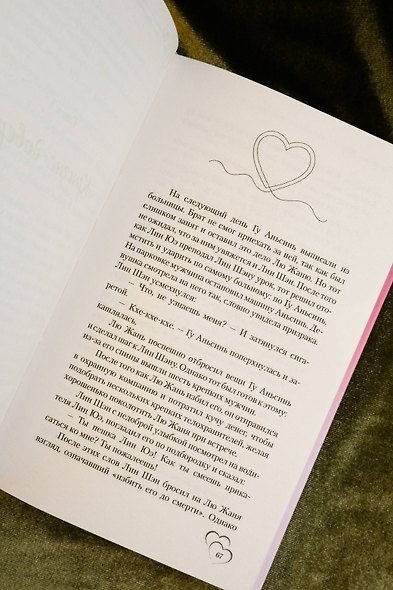 На следующий день Гу Аньсинь выписали из
больницы. Брат не смог приехать за ней, так как был
слишком занят и оставил это дело Лю Жаню. Но тот
не ожидал, что за ним увяжется и Лин Шэн. После того
как Лин Юэ преподал Лин Шэну урок, тот решил ото-
мстить и ударить по самому больному: по Гу Аньсинь.
На парковке мужчина остановил машину Аньсинь. Де-
вушка смотрела на него так, словно увидела призрака.
Лин Шэн усмехнулся:
— Что, не узнаешь меня? — И затянулся сига-
ретой.
— Кхе-кхе-кхе, — Гу Аньсинь поперхнулась и за-
кашлялась.
Лю Жань поспешно отбросил вещи Гу Аньсинь
и сделал шаг к Лин Шэну. Однако тот был готов к этому:
из-за его спины вышли шесть крепких мужчин.
После того как Лю Жань избил его, он отправился
в охранную компанию и потратил кучу денег, чтобы
подобрать нескольких крепких телохранителей, желая
хорошенько поколотить Лю Жаня при встрече.
Лин Шэн с недоброй улыбкой посмотрел на води-
теля Лин Юэ, погладил его по подбородку и сказал:
— Ты пешка Лин Юэ! Как ты смеешь прика-
саться ко мне? Ты пожалеешь!
После этих слов Лин Шэн бросил на Лю Жаня
взгляд, означавший «избить его до смерти». Однако
67